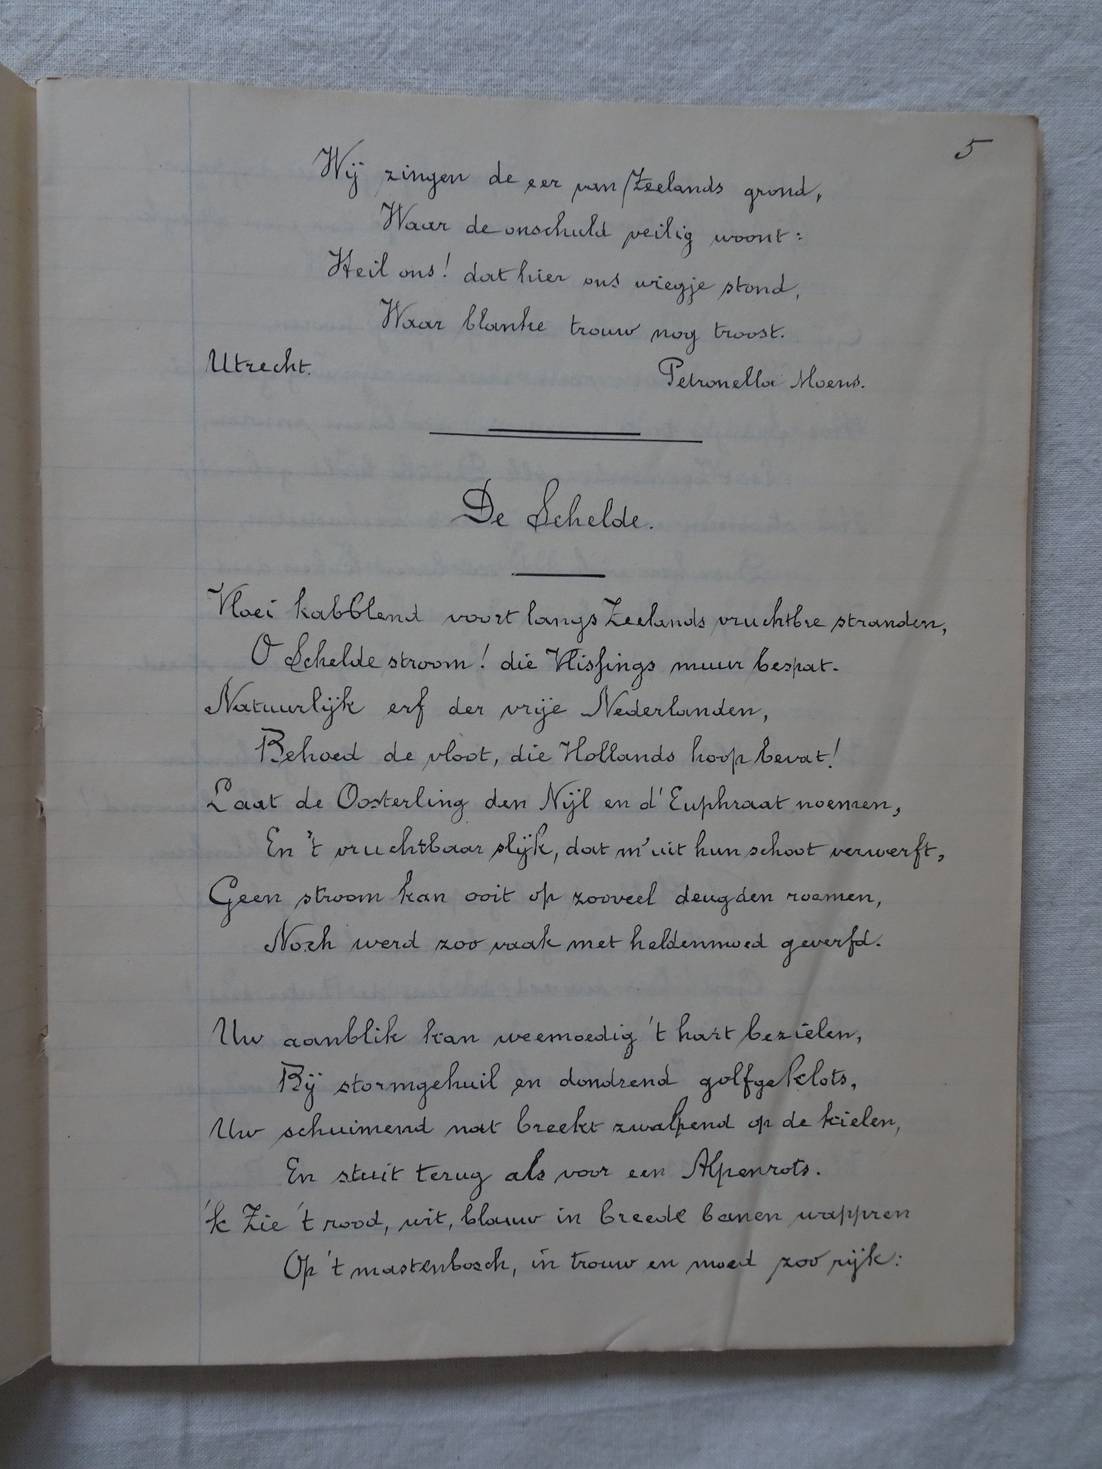 5
Wij zingen de eer van Zeelands grond,
Waar de onschuld veilig woont:
Heil ons! dat hier ons wiegje stond,
Waar blanke trouw nog troost.
Utrecht. Petronella Moens.
De Schelde.
Vloei kabblend voort langs Zeelands vruchtbre stranden,
O Schelde stroom! die Vlissings muur bespat.
Natuurlijk erf der vrije Nederlanden,
Behoed de vloot, die Hollands hoop bevat!
Laat de Oosterling den Nijl en d'Euphraat noemen,
En 't vruchtbaar slijk, dat m'uit hun schoot verwerft,
Geen stroom kan ooit op zooveel deugden roemen,
Noch werd zoo vaak met heldenmoed geverfd.
Uw aanblik kan weemoedig 't hart bezielen,
Bij stormgehuil en dondrend golfgeklots,
Uw schuimend nat breekt zwalpend op de kielen,
En stuit terug als voor een Alpenrots.
'k Zie 't rood, wit, blauw in breede banen wappren
Op 't mastenbosch, in trouw en moed zoo rijk: